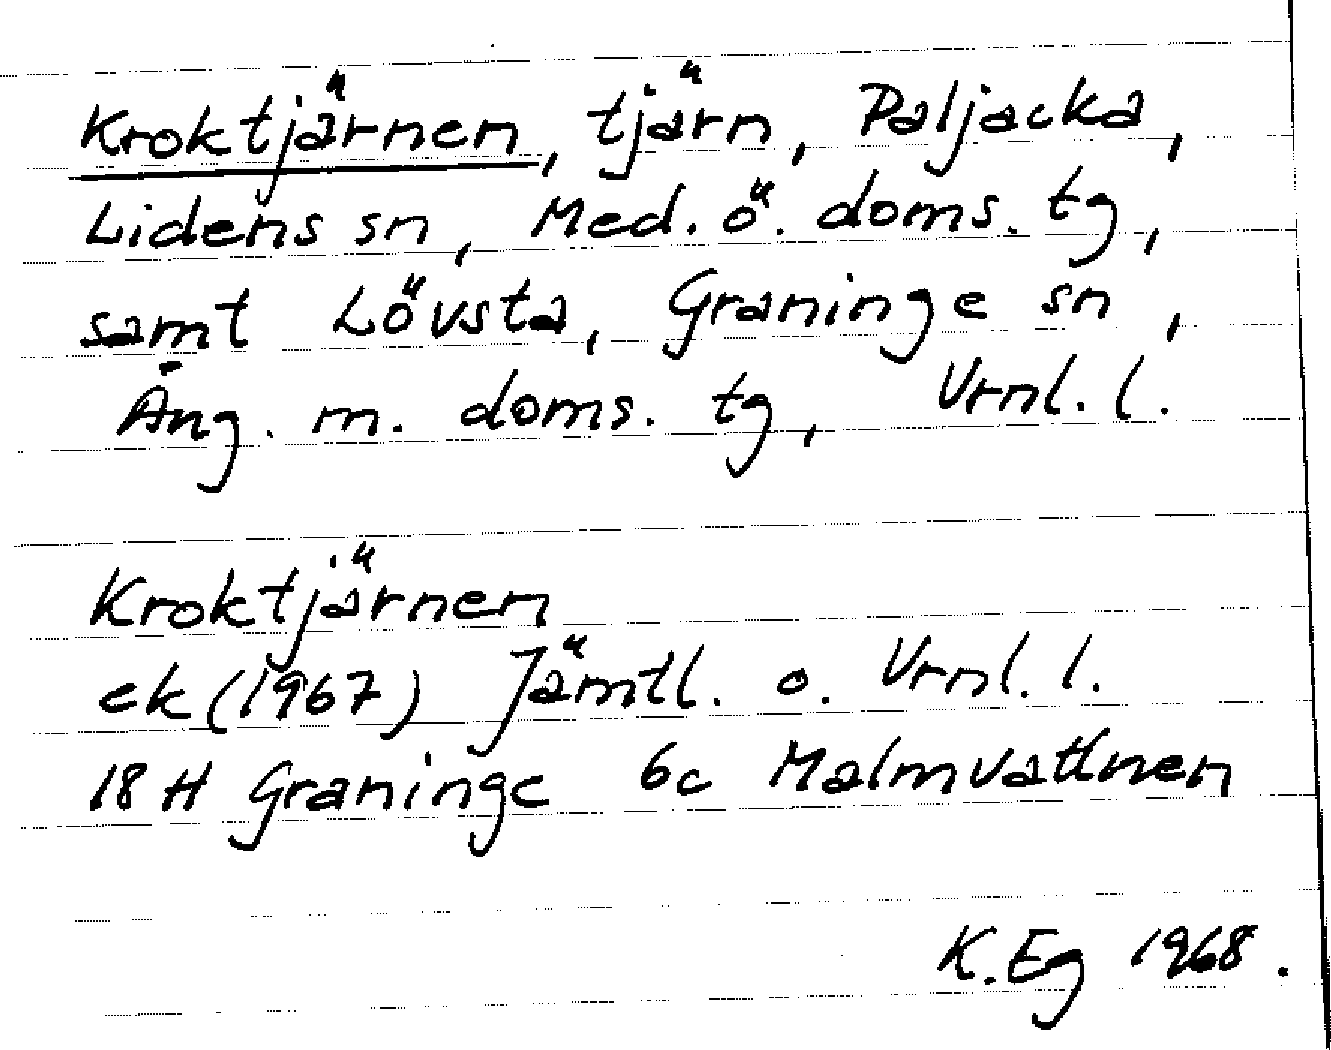 Kroktjärnen, tjärn, Paljacka,
Lidens sn, Med. ö. doms. tg,
samt Lövsta, Graninge sn,
Äng. m. doms. tg, Vrnl. l.
Kroktjärnen
ek (1967) Jämtl. o. Vrnl. l.
18 H Graninge 6c Malmvattnen
K. Eg 1968.